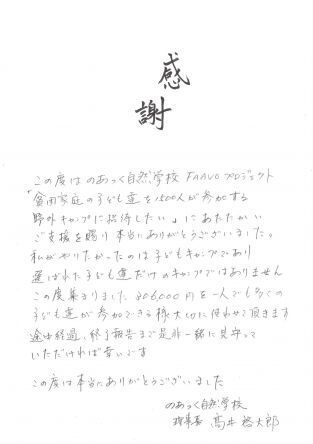 感
謝
この度はのあっく自然学校 FAAVOプロジェクト
「貧困家庭の子ども達を1500人が参加する
野外キャンプに招待したい」にあたたかい
ご支援を賜り本当にありがとうございました。
私がやりたかったのは子どもキャンプであり
選ばれた子ども達だけのキャンプではありません
この度集まりました 206,000円を一人でも多くの
子ども達が参加できる様大切に使わせて頂きます
途中経過、終了報告まで是非一緒に見守って
いただければ幸いです
この度は本当にありがとうございました
のあっく自然学校
理事長 高井 啓太郎